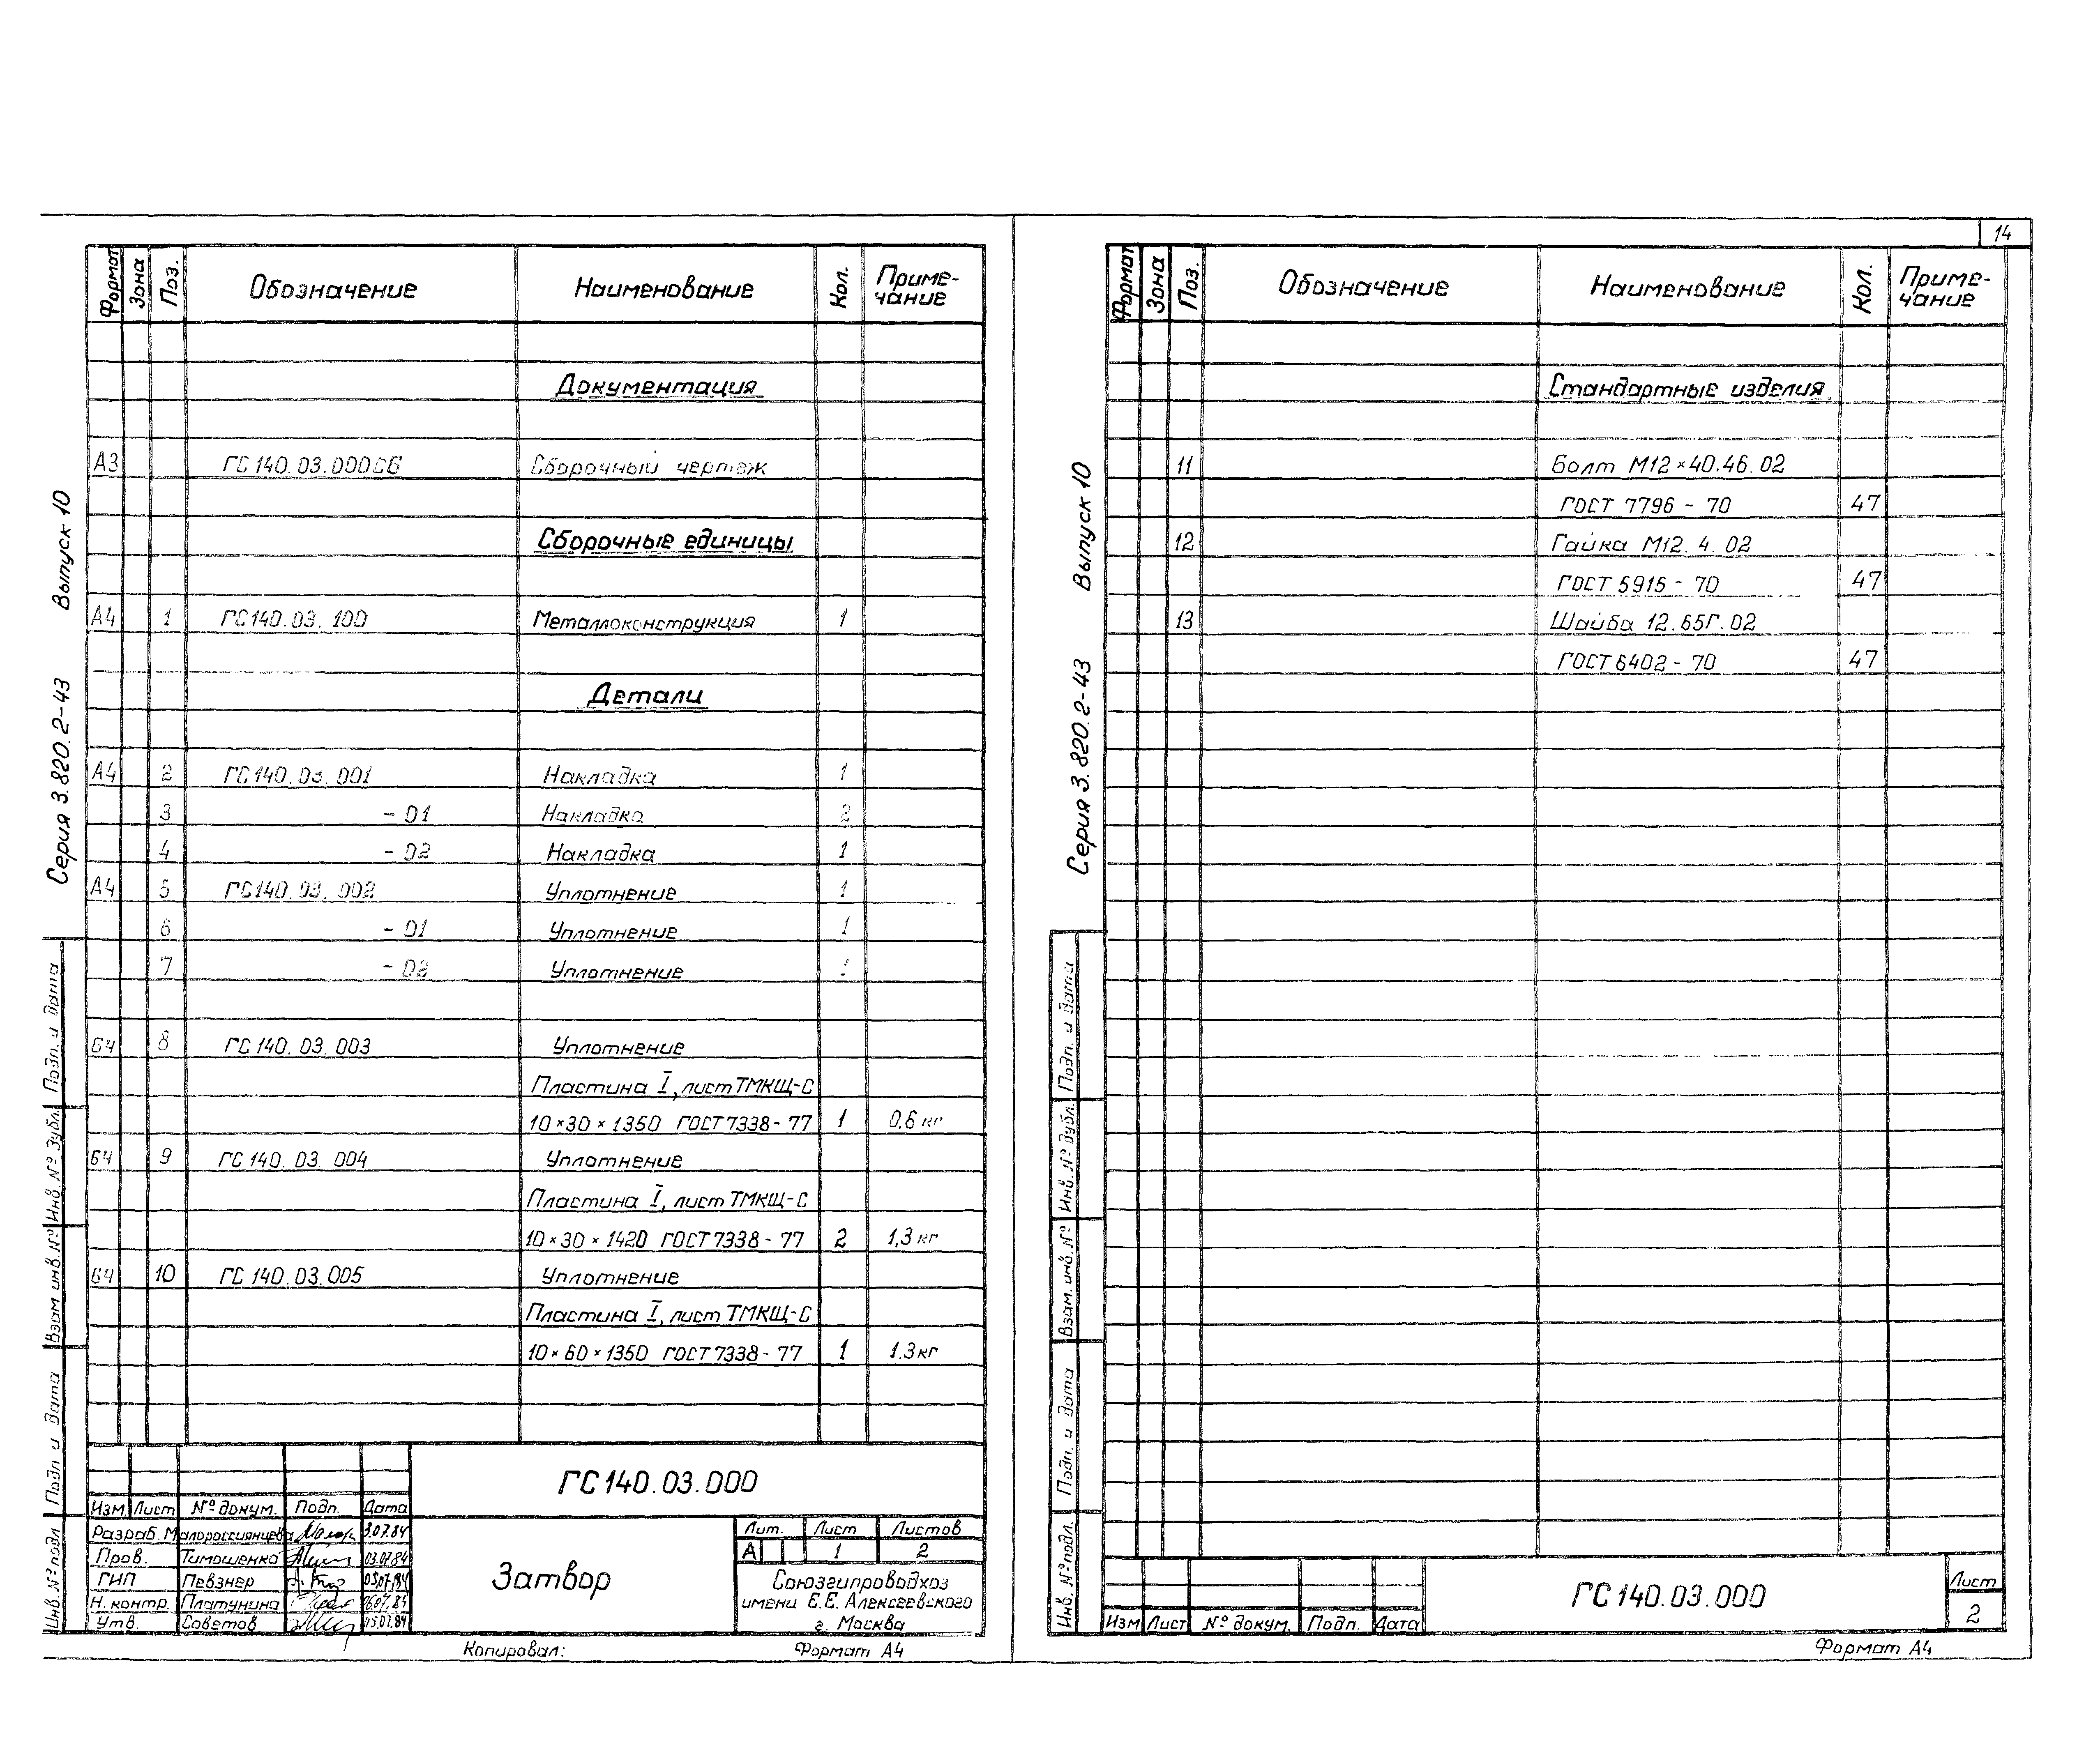 14
Серия 3.820.2-43 Выпуск 10
Формат Зона Поз. Обозначение Наименование Кол. Приме-
чание
Документация
А3 ГС140.03.000СБ Сборочный чертеж
Сборочные единицы
А4 1 ГС140.03.100 Металлоконструкция 1
Детали
А4 2 ГС140.03.001 Накладка 1
3 - 01 Накладка 2
4 - 02 Накладка 1
А4 5 ГС140.03.002 Уплотнение 1
6 - 01 Уплотнение 1
7 - 02 Уплотнение 1
БЧ 8 ГС140.03.003 Уплотнение
Пластина I, лист ТМКЩ-С
10×30×1350 ГОСТ 7338-77 1 0,6 кг
БЧ 9 ГС140.03.004 Уплотнение
Пластина I, лист ТМКЩ-С
10×30×1420 ГОСТ 7338-77 2 1,3 кг
БЧ 10 ГС140.03.005 Уплотнение
Пластина I, лист ТМКЩ-С
10×60×1350 ГОСТ 7338-77 1 1,3 кг
Подп. и дата
Инв. № дубл.
Взам инв. №
Подп и дата
Инв. № подл
ГС140.03.000
Изм Лист № докум. Подп. Дата
Разраб. Малороссиянцева 3.07.84
Пров. Тимошенко 03.07.84
ГИП Певзнер 05.07.84
Н. контр. Платунина 06.07.84
Утв. Советов 05.07.84
Затвор
Лит. Лист Листов
А 1 2
Союзгипроводхоз
имени Е.Е. Алексеевского
г. Москва
Копировал: Формат А4
Серия 3.820.2-43 Выпуск 10
Формат Зона Поз. Обозначение Наименование Кол. Приме-
чание
Стандартные изделия
11 Болт М12×40.46.02
ГОСТ 7796-70 47
12 Гайка М12.4.02
ГОСТ 5915-70 47
13 Шайба 12.65Г.02
ГОСТ 6402-70 47
Подп. и дата
Инв. № дубл.
Взам. инв. №
Подп. и дата
Инв. № подл.
Изм Лист № докум. Подп. Дата
ГС140.03.000
Лист
2
Формат А4